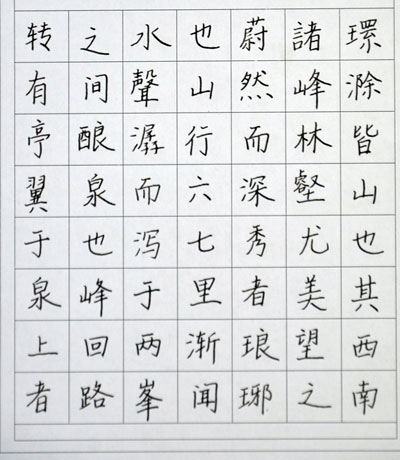 環滁皆山也其西南
諸峰林壑尤美望之
蔚然而深秀者琅琊
也山行六七里渐闻
水聲潺而泻于两峯
之间酿泉也峰回路
转有亭翼于泉上者